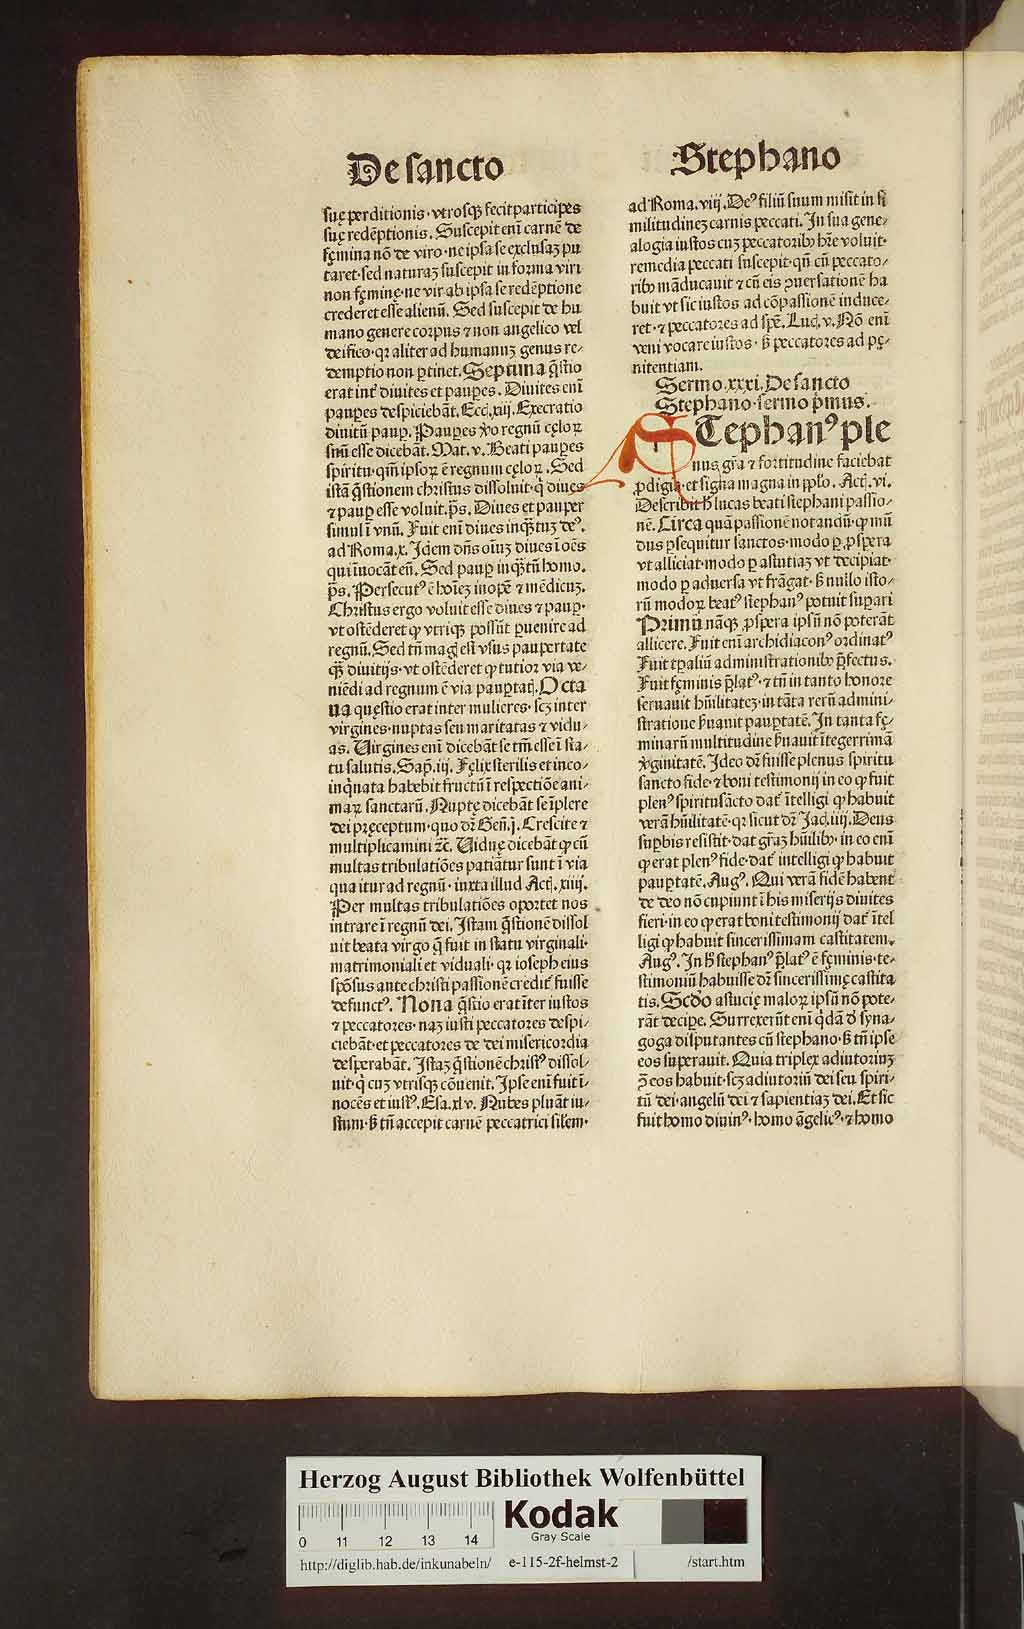 De sancto
suę perditionis·vtrosqꝫ fecit participes
suę redēptionis. Suscepit enī carnē de
fęmina nō de viro·ne ipsa se exclusaꝫ pu
taret·sed naturaꝫ suscepit in forma viri
non fęminę·ne vir ab ipsa se redēptione
crederet esse alienū. Sed suscepit de hu
mano genere corpus ⁊ non angelico vel
deifico·qꝛ aliter ad humanuꝫ genus re⸗
demptio non ꝑtinet. Septima q̄stio
erat int̄ diuites et pauꝑes. Diuites enī
pauꝑes despiciebāt. Ecc̄. xiij. Execratio
diuitū pauꝑ. Pauꝑes ꝟo regnū cęloꝝ
snū esse dicebāt. Mat. v. Beati pauꝑes
spiritu·qm̄ ipsoꝝ ē regnum cęloꝝ. Sed
istā q̄stionem christus dissoluit·qͥ diues
⁊ pauꝑ esse voluit. p̄s. Diues et pauper
simul ī vnū. Fuit enī diues inqͥtuꝫ deꝰ.
ad Roma. x. Idem dn̄s oīuꝫ diues ī oēs
qui īuocāt eū. Sed pauꝑ inqͣtū homo.
p̄s. Persecutꝰ ē hoīeꝫ inopē ⁊ mēdicuꝫ.
Christus ergo voluit esse diues ⁊ pauꝑ·
vt ostēderet ꝙ vtriqꝫ possūt ꝑuenire ad
regnū. Sed tn̄ magꝭ est vsus paupertate
qꝫ̄ diuitijs·vt ostēderet ꝙ tutior via ve⸗
niēdi ad regnum ē via pauꝑtatꝭ. Octa
ua quęstio erat inter mulieres·scꝫ inter
virgines·nuptas seu maritatas ⁊ vidu⸗
as. Virgines enī dicebāt se tm̄ esse ī sta⸗
tu salutis. Sap̄. iij. Fęlix sterilis et inco⸗
inqͥnata habebit fructū ī respectiōe ani⸗
maꝝ sanctarū. Nuptę dicebāt se īplere
dei pręceptum·quo dr̄ Gen̄. j. Crescite ⁊
multiplicamini ⁊c̄. Viduę dicebāt ꝙ cū
multas tribulatiōes patiātur sunt ī via
qua itur ad regnū·iuxta illud Actꝭ. xiiij.
Per multas tribulatiōes oportet nos
intrare ī regnū dei. Istam q̄stionē dissol
uit beata virgo q̄ fuit in statu virginali·
matrimoniali et viduali·qꝛ ioseph eius
spōsus ante christi passionē credit̄ fuisse
defunctꝰ. Nona q̄stio erat īter iustos
⁊ peccatores·naꝫ iusti peccatores despi⸗
ciebāt·et peccatores de dei misericordia
desperabāt. Istaꝫ q̄stionē christꝰ dissol⸗
uit·qͥ cuꝫ vtrisqꝫ cōuenit. Ipse enī fuit ī⸗
nocēs et iustꝰ. Esa. xlv. Nubes pluāt iu⸗
stum·ß tn̄ accepit carnē peccatrici siľem·
Stephano
ad Roma. viij. Deꝰ filiū suum misit in si
militudineꝫ carnis peccati. In sua gene⸗
alogia iustos cuꝫ peccatoribꝰ hr̄e voluit·
remedia peccati suscepit·qn̄ cū peccato⸗
ribꝰ māducauit ⁊ cū eis ꝯuersationē ha
buit vt sic iustos ad cōpassionē induce⸗
ret·⁊ peccatores ad spē. Luc̄. v. Nō enī
veni vocare iustos·ß peccatores ad pę⸗
nitentiam.
Sermo. xxxi. De sancto
Stephano·sermo p̄mus.
STephanꝰ ple
nus gr̄a ⁊ fortitudine faciebat
ꝓdigia·et signa magna in pplo. Actꝭ. vi.
Describit h̄ lucas beati stephani passio⸗
nē. Circa quā passionē notandū·ꝙ mū
dus ꝑsequitur sanctos·modo ꝑ ꝓspera
vt alliciat·modo ꝑ astutiaꝫ vt decipiat·
modo ꝑ aduersa vt frāgat·ß nullo isto⸗
rū modoꝝ beatꝰ stephanꝰ potuit suꝑari
Primū nāqꝫ ꝓspera ipsū nō poterāt
allicere. Fuit enī archidiaconꝰ ordinatꝰ
Fuit tꝑaliū administrationibꝰ p̄fectus.
Fuit fęminis p̄latꝰ·⁊ tn̄ in tanto honore
seruauit hūilitateꝫ·in tāta rerū admini⸗
stratione ßuauit pauꝑtatē. In tanta fę⸗
minarū multitudine ßuauit ītegerrimā
ꝟginitatē. Ideo dr̄ fuisse plenus spiritu
sancto fide·⁊ boni testimonij in eo ꝙ fuit
plenꝰ spiritusācto dat̄ ītelligi ꝙ habuit
verā hūilitatē·qꝛ sicut dr̄ Jac̄. iiij. Deus
suꝑbis resistit·dat gr̄aꝫ hūilibꝰ·in eo enī
ꝙ erat plenꝰ fide·dat̄ intelligi ꝙ habuit
pauꝑtatē. Augꝰ. Qui verā fidē habent
de deo nō cupiunt ī his miserijs diuites
fieri·in eo ꝙ erat boni testimonij dat̄ ītel
ligi ꝙ habuit sincerissimam castitatem.
Augꝰ. In h̄ stephanꝰ p̄latꝰ ē fęminis·te⸗
stimoniū habuisse dr̄ sincerissimę castita
tis. Scdo astucię maloꝝ ipsū nō pote⸗
rāt deciꝑe. Surrexerūt enī qͥdā d̄ syna⸗
goga disputantes cū stephano·ß tn̄ ipse
eos superauit. Quia triplex adiutoriuꝫ
ꝯ̄ eos habuit·scꝫ adiutoriū dei seu spiri⸗
tū dei·angelū dei ⁊ sapientiaꝫ dei. Et sic
fuit homo diuinꝰ·homo āgelicꝰ·⁊ homo
Herzog August Bibliothek Wolfenbüttel
0 11 12 13 14
Kodak
Gray Scale
http://diglib.hab.de/inkunabeln/ e-115-2f-helmst-2 /start.htm